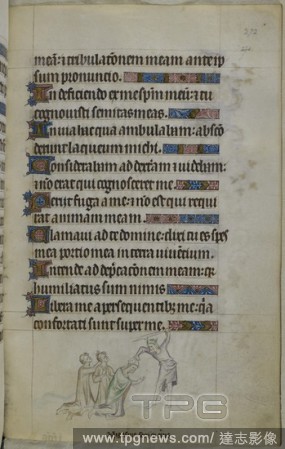 meam: ⁊ tribulac̄onem meam ante ip̄
sum pronuncio.
In deficiendo ex me sp̄m meū: ⁊ tu
cognouisti semitas meas.
In uia hac qua ambulabam: absc̄o
derunt laqueum michi.
Considerabam ad dextram ⁊ uidebam:
⁊ nō erat qui cognosceret me.
Periit fuga a me: ⁊ nō est qui requi
rat animam meam.
Clamaui ad te domine: dixi tu es spes
mea portio mea in terra uiuencium.
Intende ad dep̄cac̄onem meam: q̄
humiliatus sum nimis
Libera me a persequentib; me: q̄a
confortati sunt super me.
TPG
www.tpgnews.com/達志影像